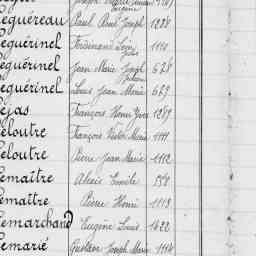 eguéreau Paul René Joseph 1288
eguérinel Ferdinand Léon 1110
eguérinel Jean Marie Joseph 628
eguérinel Louis Jean Marie 629
ejas François Henri Yves 1289
eloutre François Victor Marie 1111
eloutre Pierre Jean Marie 1112
emaître Alexis Emile
emaître Pierre Henri 1113
emarchand Eugène Louis 1422
emarié Gustave Joseph Marie 1114